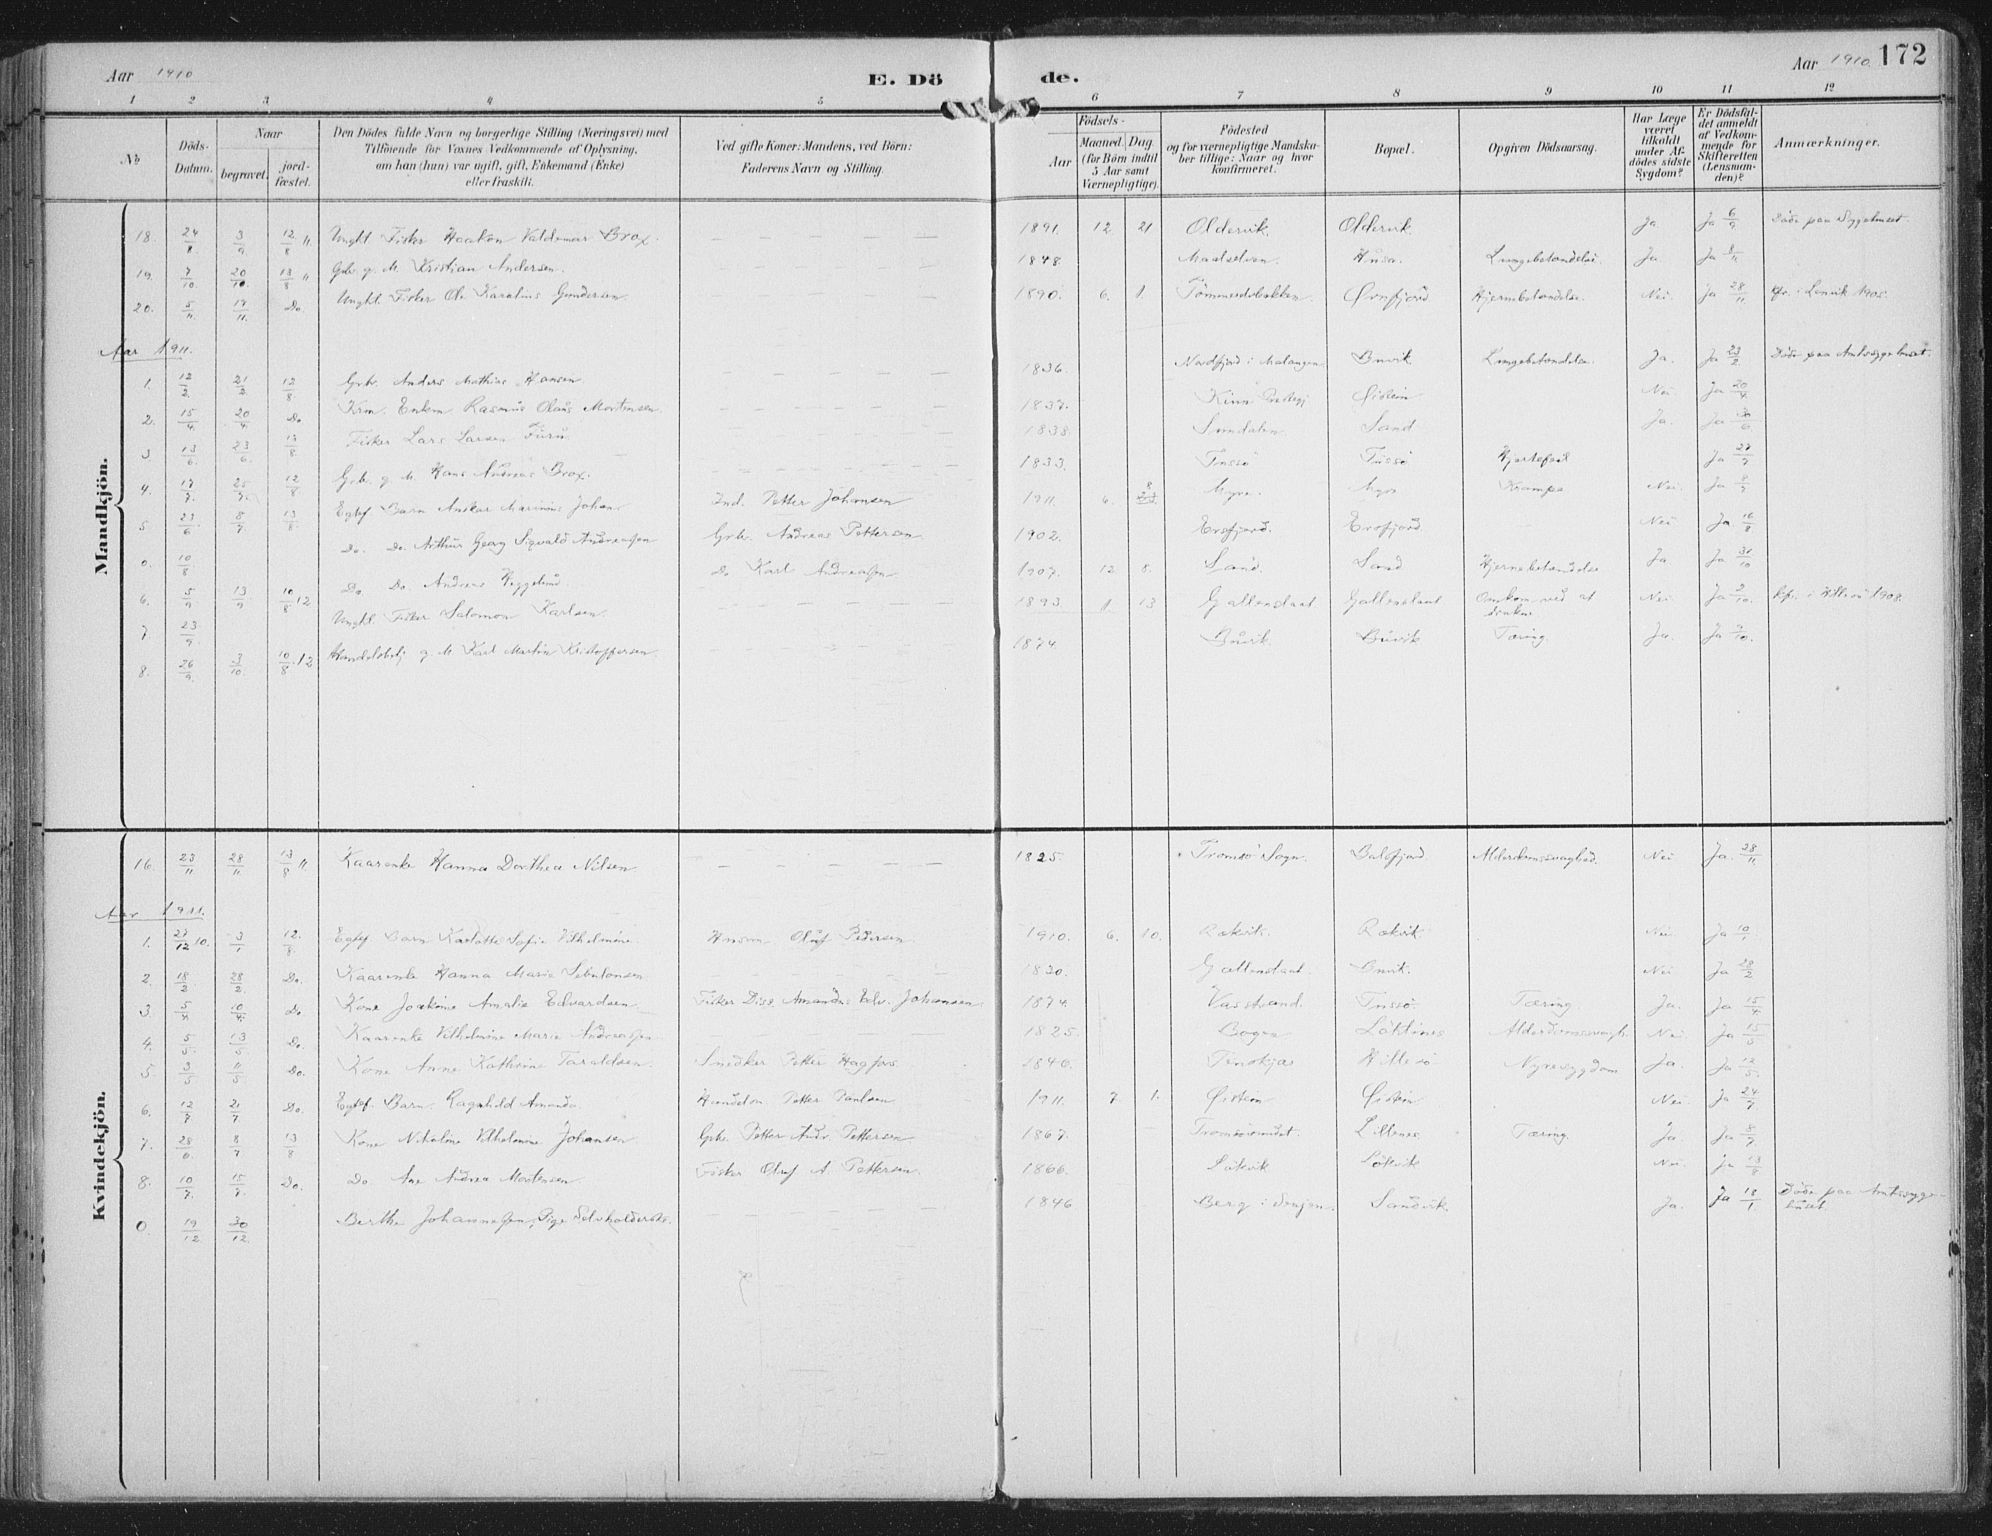 Aar 1910 E. Dö de. Aar 1910. 172
1 2 3 4 5 6 7 8 9 10 11 12
No
Döds-Datum.
Naar
begravet.
jord-fæstet.
Den Dödes fulde Navn og borgerlige Stilling (Næringsvei) med
Tilföiende for Voxnes Vedkommende af Oplysning,
om han (hun) var ugift, gift, Enkemand (Enke)
eller fraskilt.
Ved gifte Koner: Mandens, ved Börn:
Faderens Navn og Stilling.
Födsels-
Aar
Maaned. Dag
(for Börn indtil
5 Aar samt
Værnepligtige).
Födested
og for værnepligtige Mandska-
ber tillige: Naar og hvor
konfirmeret.
Bopæl.
Opgiven Dödsaarsag.
Har Læge
været
tilkaldt
under Af-
dödes sidste
Sygdom?
Er Dödsfal-
det anmeldt
af Vedkom-
mende for
Skifteretten
(Lensman-
den)?
Anmærkninger.
Mandkjön.
18. 24/8 3/9 12/8 11 Ungkl. Fisker Haakon Valdemar Brox. 1891. 12. 21 Oldervik. Oldervik. Ja. Ja 6/9 Döde paa Sygehuset.
19. 7/10 20/10. 13/8 11 Grb. g. M. Kristian Andersen. 1848. Maalselven. Husa. Lungebetændelse. Ja. Ja 8/11
20. 5/11 17/11. Do. Ungkl. Fisker Ole Karelius Gundersen 1890. 6. 1. Tömmersbakken. Ørnfjord Hjernebetændelse. Nei. Ja 28/11. Kfr. i Lenvik 1905.
Aar 1911.
1. 12/2 21/2 12/8 Grb. Anders Mathias Hansen 1836. Nordfjord i Malangen. Buvik Lungebetændelse. Ja. Ja 23/2 Döde paa Amtssygehuset.
2. 15/4 20/4 Do Krm. Enkem. Rasmus Olaus Mortensen. 1837. Kinn Prestegj Øistein Nei. Ja 20/4
3 13/6 23/6 13/8 Fisker Lars Larsen Furu. 1838 Sundalen Sand Ja. Ja
4. 17/7 25/7 12/8 Grb. g. M. Hans Andreas Brox. 1833. Tussö Tussö Hjertefeil Ja 27/7
5. 23/6 8/7. 13/8 Egtef. Barn Anskar Marinius Johan. Ind. Petter Johansen 1911. 6. 8 Myre. Myre Krampe Nei. Ja 8/7
0. 10/8 Do. Do. Arthur Georg Sigvald Andreassen Grb. Andreas Pettersen 1902. Ersfjord. Ersfjord Nei Ja 16/8
6. 5/9 13/9 10/8 12 Do Do. Andreas Heggelund Do Karl Andreassen 1907. 12 8. Sand. Sand Hjernebetændelse Ja Ja 30/10
7 23/9 Ungkl. Fisker Salomon Karlsen. 1893. 1. 13 Gallenslaat Gallenslaat Omkom ved at drukne Nei. Ja 2/10. Kfr. i Hillesö 1908.
8. 26/9 3/10 10/8 12 Handelsbetj g. M. Karl Martin Kristoffersen. 1874. Buvik. Buvik Tæring. Ja. Ja 9/10.
Kvindekjön.
16. 23/11 28/11. 13/8 11 Kaarenke Hanna Dorthea Nilsen 1825. Tromsö Sogn. Balsfjord. Alderdomssvaghed. Nei Ja. 28/11
Aar 1911.
1. 27/12 10. 3/1 12./8. Egtef. Barn Karlotte Sofie Vilhelmine. Husm. Oluf Pedersen. 1910. 6. 10. Rækvik. Rækvik. Nei. Ja 10/1
2. 18/2 28/2. Do. Kaarenke Hanna Marie Sebulonsen 1830. Gallenslaat. Buvik. Nei Ja 28/2
3. 5/4 10/4. Do. Kone Joakime Amalie Edvardsen. Fisker Diss. Amandus Edv. Johansen 1874. Vasstrand. Tussö. Tæring. Ja. Ja 15/4
4. 5/5. 13/5 Do. Kaarenke Vilhelmine Marie Andreassen. 1825. Bogen Löktinес Alderdomssvagh. Nei Ja 15/5
5 3/5 11/5 Do. Kone Anne Kathrine Taraldsen. Snedker Petter Hagfors. 1846. Tenskjær Hillesö Nyresygdom Ja. Ja 12/5.
6. 12/7 21/7 Do. Egtef. Barn Ragnhild Amanda. Handelsm Petter Paulsen 1911. 7. 1. Øistein Øistein Nei. Ja 24/7
7. 28/6 8/7 13/8 Kone Nikoline Vilhelmine Johansen Grb. Petter Andr. Pettersen 1867. Tromsösundet. Lillenes Tæring. Ja. Ja 8/7.
8. 10/7. 15/7. Do. Do. Ane Andrea Mortensen. Fisker Oluf A. Pettersen. 1866. Lökvik Lökvik Nei. Ja 13/8
0. 19/12 30/12. Berthe Johannessen, Pige Selvholderske. 1846 Berg i Senjen. Sandvik. Ja. Ja 18/1 Döde paa Amtssyge-
huset.